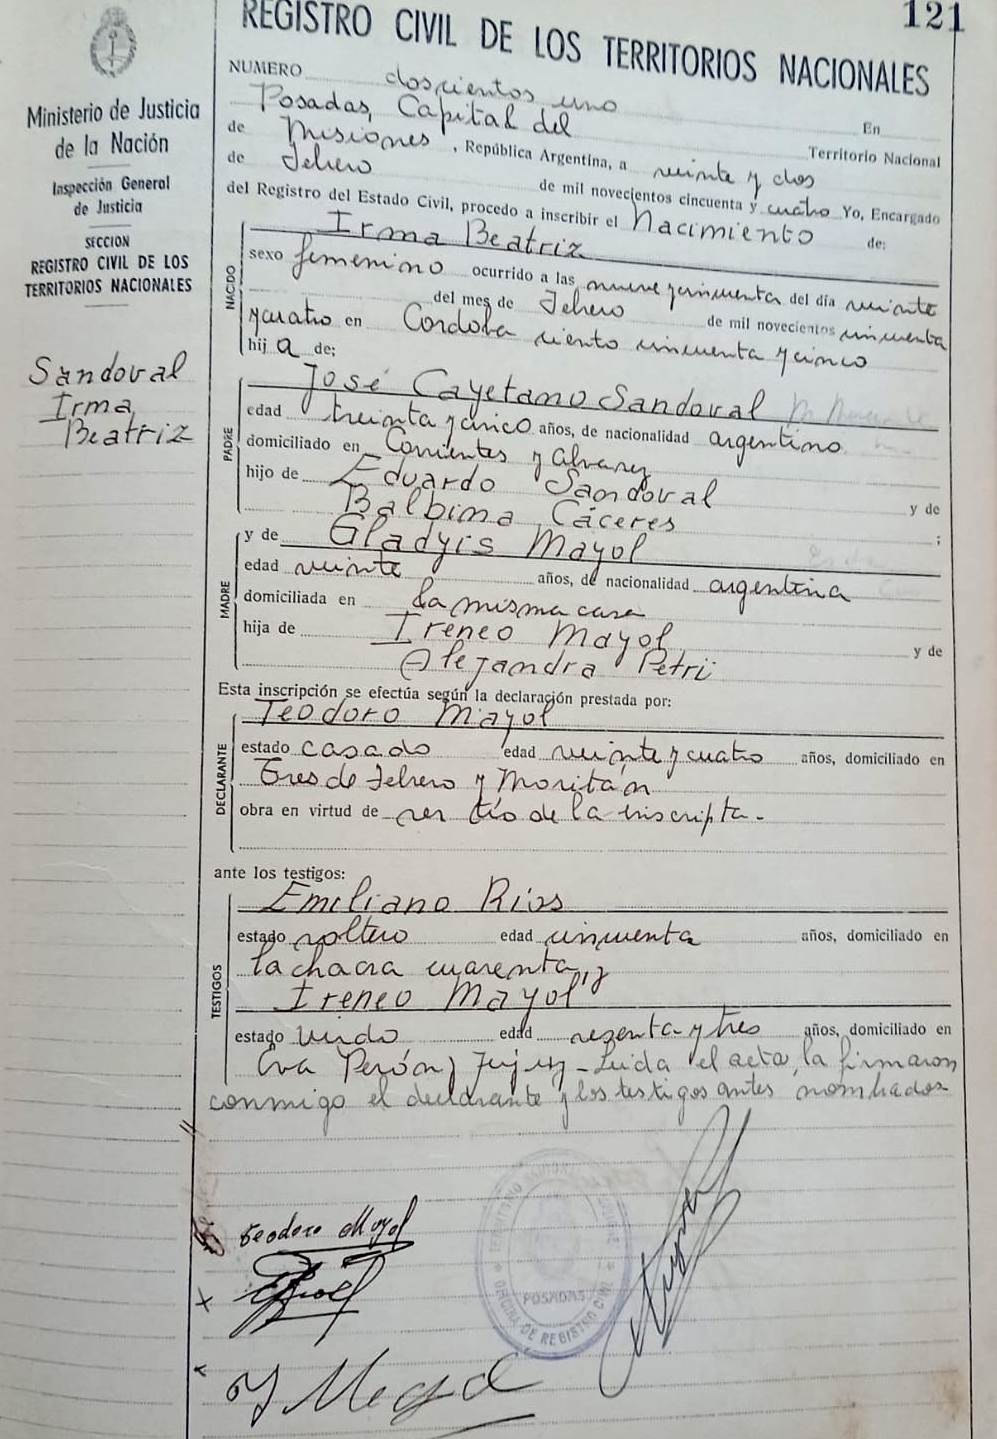 121
REGISTRO CIVIL DE LOS TERRITORIOS NACIONALES
Ministerio de Justicia
de la Nación
Inspección General
de Justicia
SECCION
REGISTRO CIVIL DE LOS
TERRITORIOS NACIONALES
Sandoval
Irma
Beatriz
NUMERO doscientos uno En
Posadas, Capital del Territorio Nacional
de Misiones, República Argentina, a veinte y dos
de Febrero de mil novecientos cincuenta y cuatro Yo, Encargado
del Registro del Estado Civil, procedo a inscribir el Nacimiento de:
NACIDO
Irma Beatriz
sexo femenino ocurrido a las nueve y cincuenta del día veinte
del mes de Febrero de mil novecientos cincuenta
y cuatro en Cordoba ciento cincuenta y cinco
hija de;
PADRE
José Cayetano Sandoval
edad treinta y cinco años, de nacionalidad argentino
domiciliado en Corrientes y Alvarez
hijo de Eduardo Sandoval y de
Balbina Cáceres ;
MADRE
y de Gladyis Mayol
edad veinte años, de nacionalidad argentina
domiciliada en la misma casa
hija de Ireneo Mayol y de
Alejandra Petri
Esta inscripción se efectúa según la declaración prestada por:
DECLARANTE
Teodoro Mayol
estado casado edad veinte y cuatro años, domiciliado en
Tres de Febrero y Moritán
obra en virtud de ser tío de la inscripta.
ante los testigos:
TESTIGOS
Emiliano Rios
estado soltero edad cincuenta años, domiciliado en
la chacra cuarenta, y
Ireneo Mayol
estado viudo edad sesenta y tres años, domiciliado en
Eva Perón y Jujuy - Leida el acta, la firmaron
conmigo el declarante y los testigos antes nombrados
Teodoro Mayol
POSADAS
OFICINA DE REGISTRO CIVIL